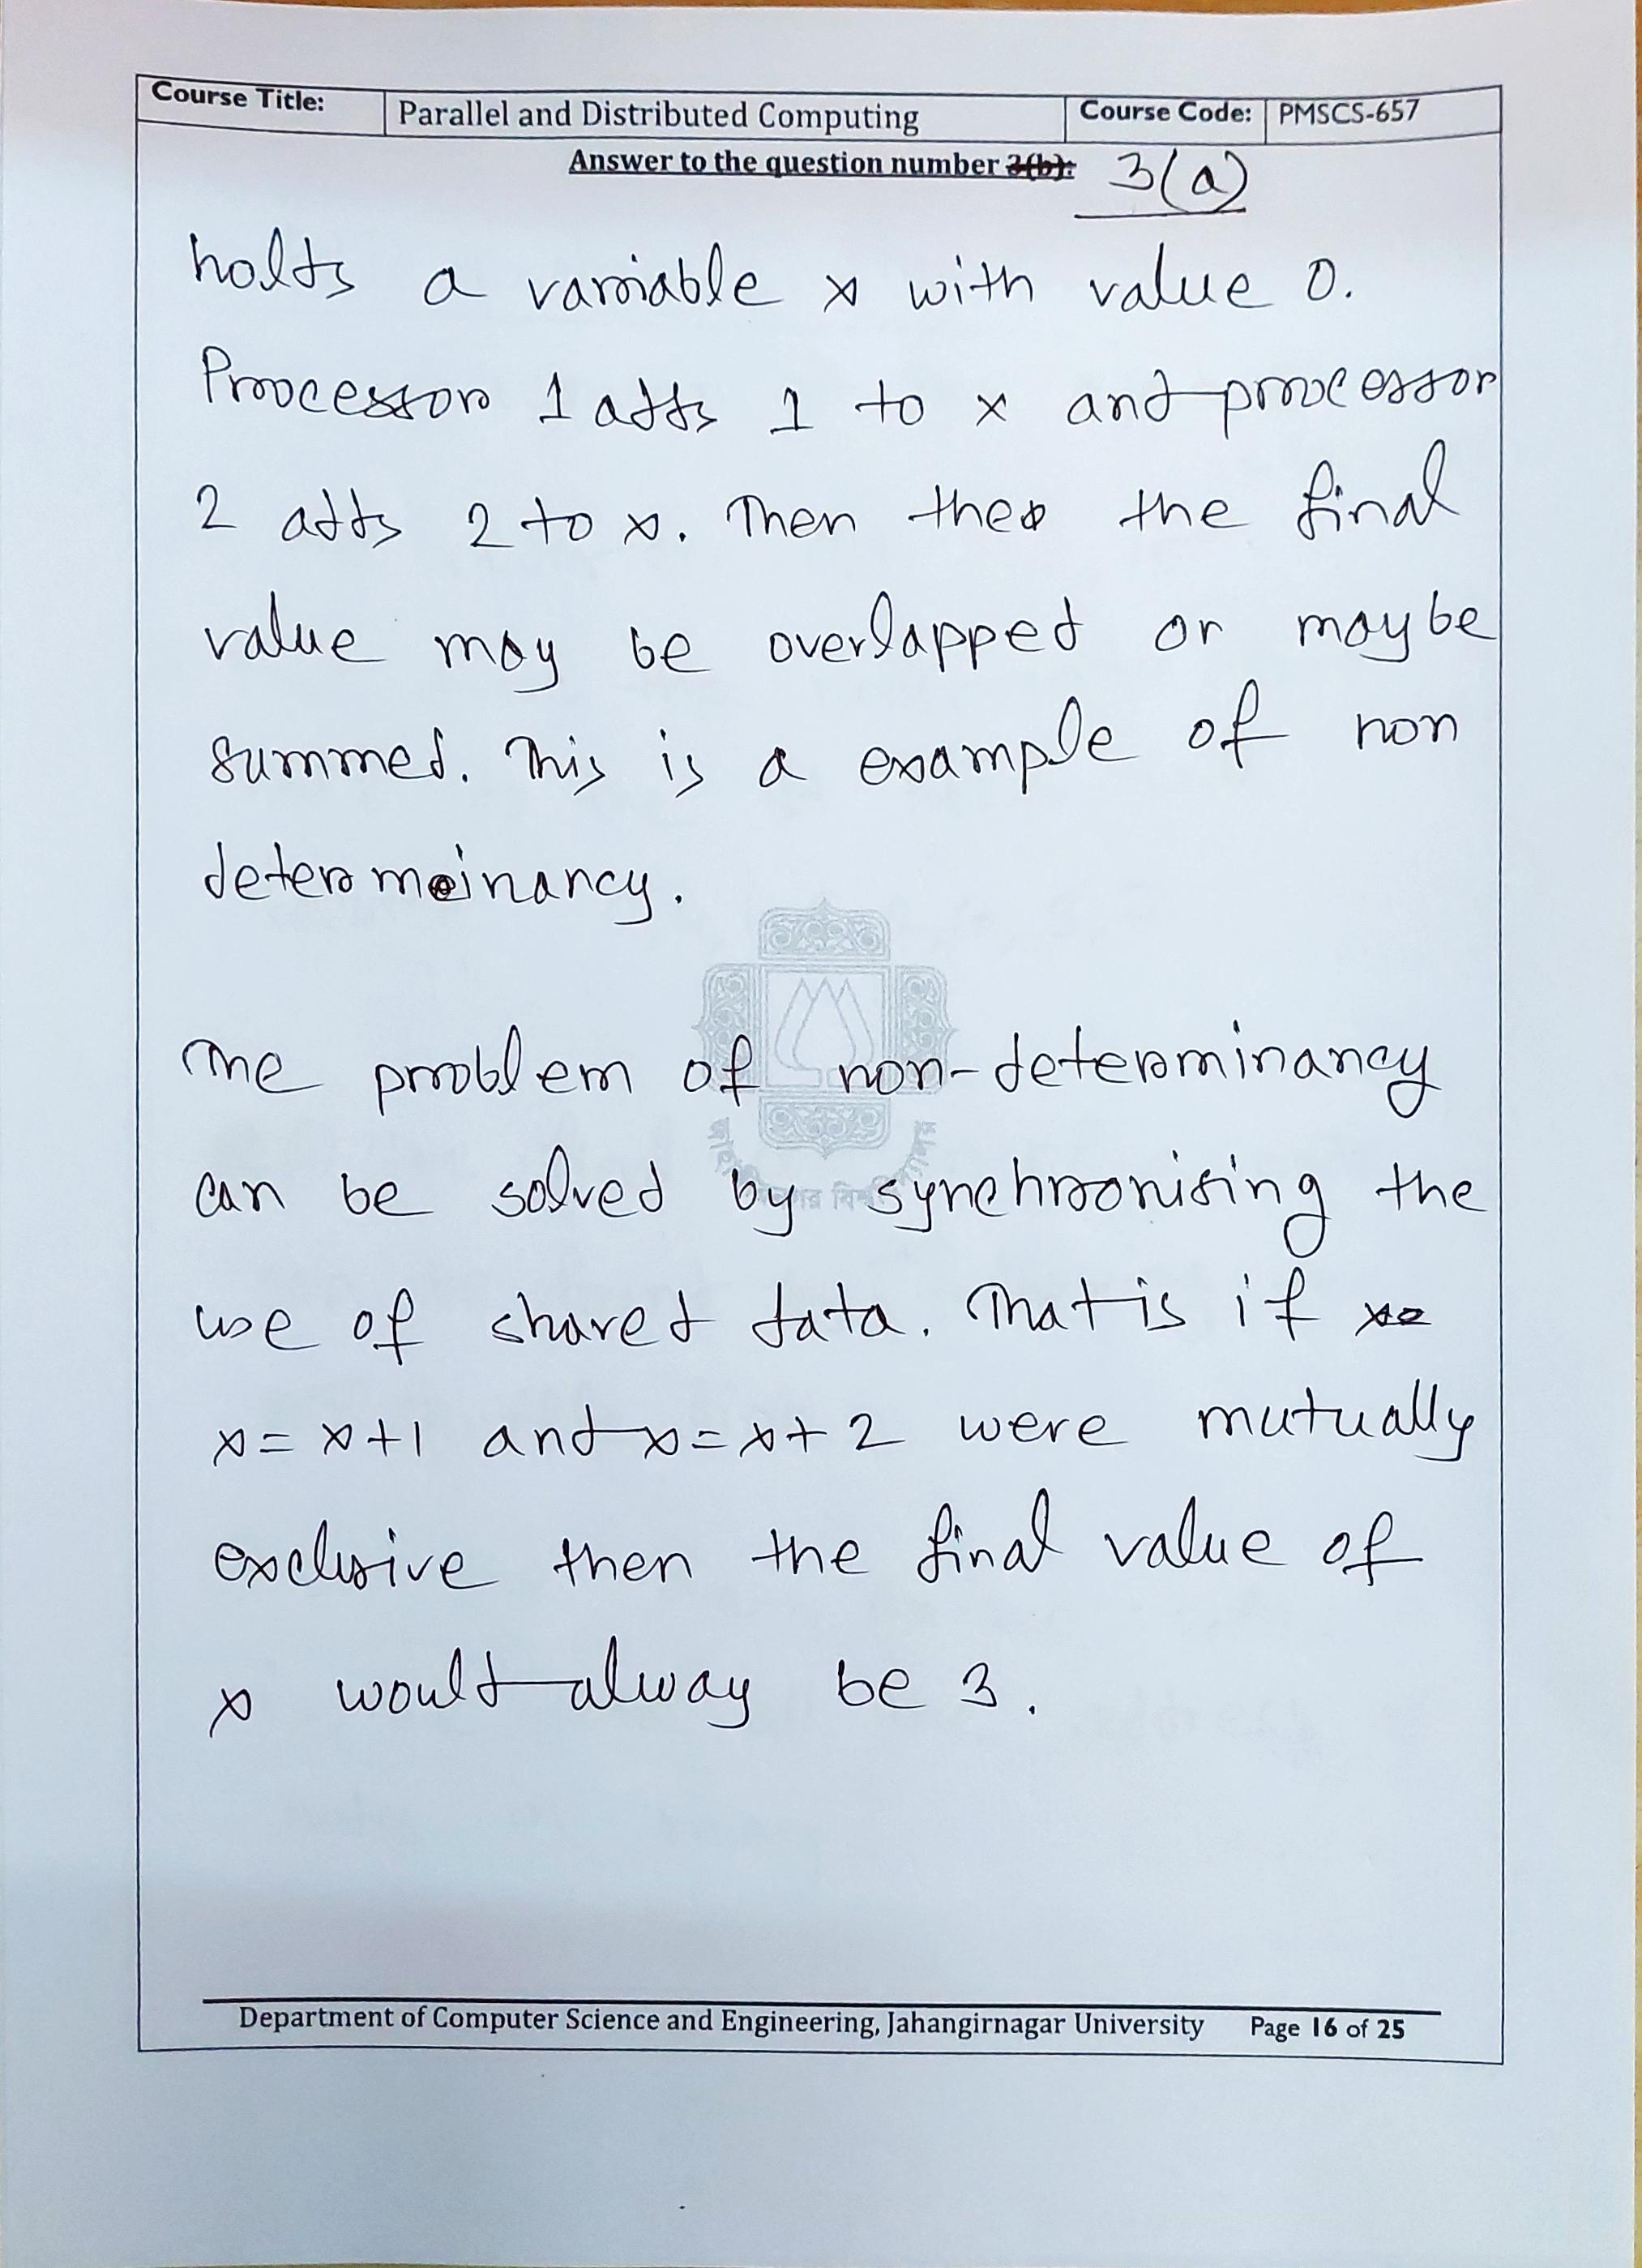 Course Title: Parallel and Distributed Computing Course Code: PMSCS-657
Answer to the question number 3(b): 3(a)
holds a variable x with value 0.
Processor 1 adds 1 to x and processor
2 adds 2 to x. Then the the final
value may be overlapped or maybe
summed. This is a example of non
determinancy.
The problem of non-determinancy
can be solved by synchronising the
use of shared data. That is if
x = x+1 and x = x+2 were mutually
exclusive then the final value of
x would alway be 3.
Department of Computer Science and Engineering, Jahangirnagar University Page 16 of 25